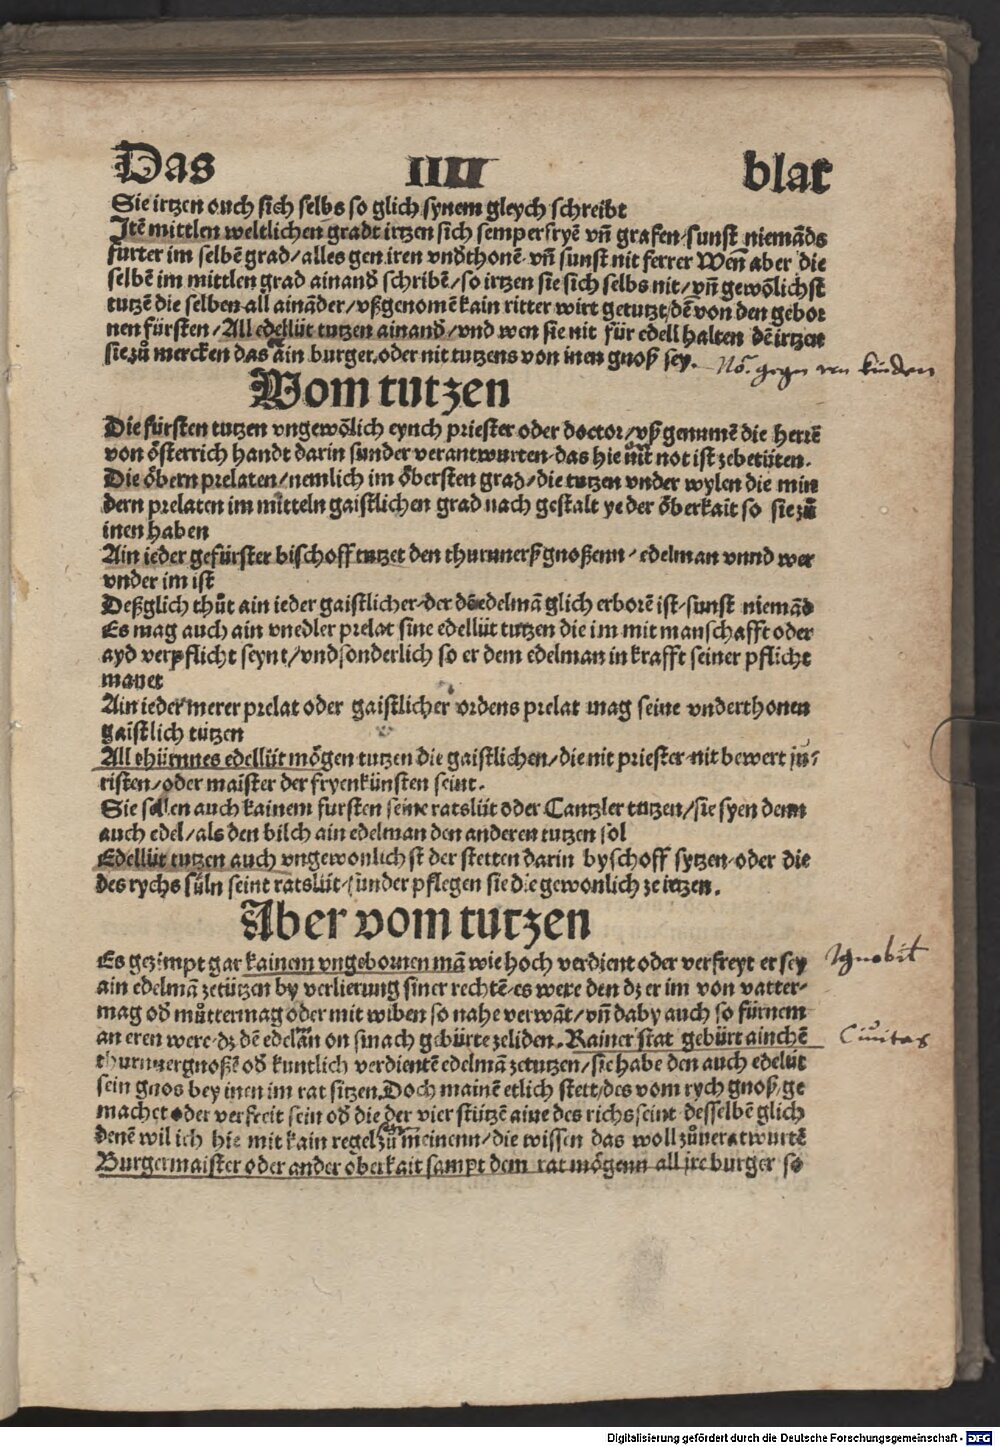 Das IIII blat
Sie irtzen ouch sich selbs so glich synem gleych schreibt
Itē mittlen weltlichen gradt irtzen sich sempersryē vñ grafen sunst niemāds
furter im selbē grad/alles gen iren vnd'thonē vñ sunst nit ferrer Weñ aber die
selbē im mittlen grad ainand' schribē/so irtzen sie sich selbs nit/vñ gewōlichst
tutzē die selben all aināder/vßgenomē kain ritter wirt getutzt/dē von den gebor
nen fürsten/All edellüt tutzen ainand'/vnd wen sie nit für edell halten dē irtzen
sie.zů mercken das ain burger.oder nit tutzens von inen gnoß sey.
Vom tutzen
Die fürsten tutzen vngewōlich eynch priester oder doctor/vß genumē die herrē
von österrich handt darin sunder verantwurten das hie nit not ist zebetüten.
Die öbern prelaten/nemlich im öbersten grad/die tutzen vnder wylen die min
dern prelaten im mitteln gaistlichen grad nach gestalt yeder öberkait so sie zů
inen haben
Ain ieder gefürster bischoff tutzet den thurnnerßgnoßenn/edelman vnnd wer
vnder im ist
Deßglich thůt ain ieder gaistlicher der dē edelmā glich erborē ist sunst niemād
Es mag auch ain vnedler prelat sine edellüt tutzen die im mit manschafft oder
ayd verpflicht seynt/vnd sonderlich so er dem edelman in krafft seiner pflicht
manet
Ain ieder merer prelat oder gaistlicher ordens prelat mag seine vnderthonen
gaistlich tutzen
All thürnnes edellüt mögen tutzen die gaistlichen/die nit priester nit bewert ju-
risten/oder maister der fryenkünsten seint.
Sie sollen auch kainem fursten seine ratslüt oder Cantzler tutzen/sie syen denn
auch edel/als den bilch ain edelman den anderen tutzen sol
Edellüt tutzen auch vngewonlich st der stetten darin byschoff sytzen oder die
des rychs süln seint ratslüt sunder pflegen sie die gewonlich ze irtzen.
Aber vom tutzen
Es gezimpt gar kainem vngebornen mā wie hoch verdient oder verfreyt er sey
ain edelmā zetützen by verlierung siner rechtē es were den dz er im von vatter-
mag od' můttermag oder mit wiben so nahe verwāt/vñ daby auch so fürnem
an eren were dz dē edelmān on smach gebürte zeliden. Kainer stat gebürt ainchē
thurnnergnoßē od' kuntlich verdientē edelmā zetutzen/sie habe den auch edelüt
sein gnos bey inen im rat sitzen. Doch mainē etlich stett/des vom rych gnoß ge
machet oder verfreit sein od' die der vier stützē aine des richs seint desselbē glich
denē wil ich hie mit kain regel zů meinenn/die wissen das woll zůuerātwurtē
Burgermaister oder ander oberkait sampt dem rat mögenn all ire burger so
Ignobil
Ciuitas
Digitalisierung gefördert durch die Deutsche Forschungsgemeinschaft - DFG